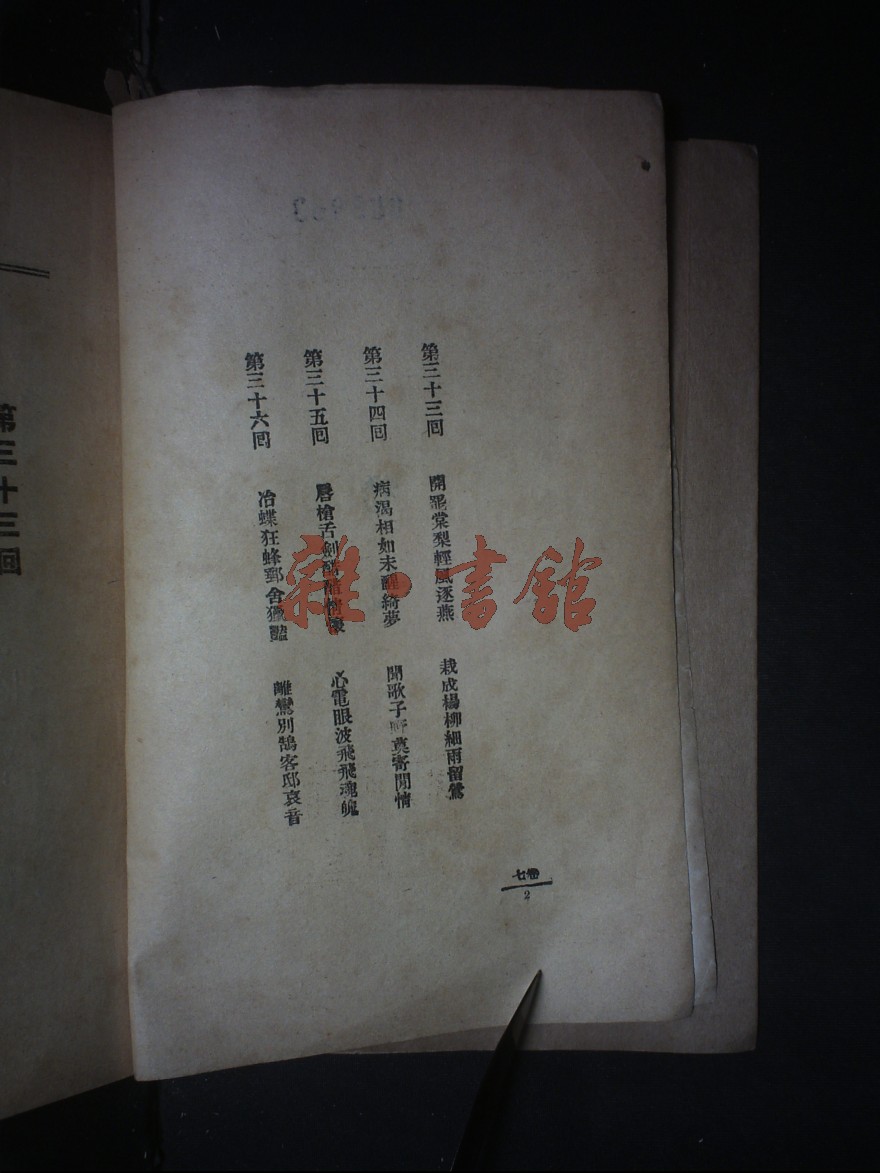 第三十三回 開罷棠梨輕風逐燕 栽成楊柳細雨留鶯
第三十四回 病渴相如未醒綺夢 聞歌子 奠寄閒情
第三十五回 唇槍舌劍
心電眼波飛飛魂魄
第三十六回 冶蝶狂蜂郵舍獵豔 離鸞別鵠客邸哀音
七卷
2
第三十三回
雜·書館